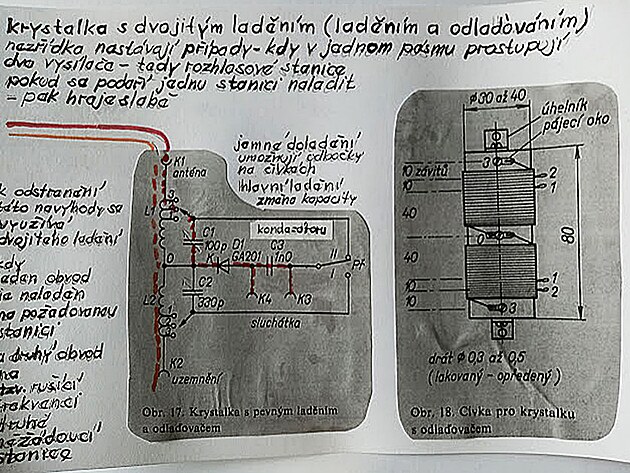 krystalka s dvojitým laděním (laděním a odlaďováním)
nezřídka nastávají případy - kdy v jednom pásmu prostupují
dva vysílače - tedy rozhlasové stanice
pokud se podaří jednu stanici naladit
- pak hraje slabě
k odstranění
této nevýhody se
využívá
dvojitého ladění
kdy
jeden obvod
je naladěn
na požadovanou
stanici
a druhý obvod
na
tzv. rušící
frekvenci
druhé
nežádoucí
stanice
jemné doladění
umožňují odbočky
na cívkách
hlavní ladění
změna kapacity
kondenzátoru
K1
anténa
3
L1
C1
100p
D1
GA201
C3
1n0
0
K
II
I
Př
L2
C2
330p
K4
K3
3
sluchátka
K2
uzemnění
Obr. 17. Krystalka s pevným laděním
a odlaďovačem
Ø30 až 40
úhelník
pájecí oko
3
10 závitů
2
10
1
40
0
80
40
10
1
10
2
3
drát Ø 0,3 až 0,5
(lakovaný - opředený)
Obr. 18. Cívka pro krystalku
s odlaďovačem